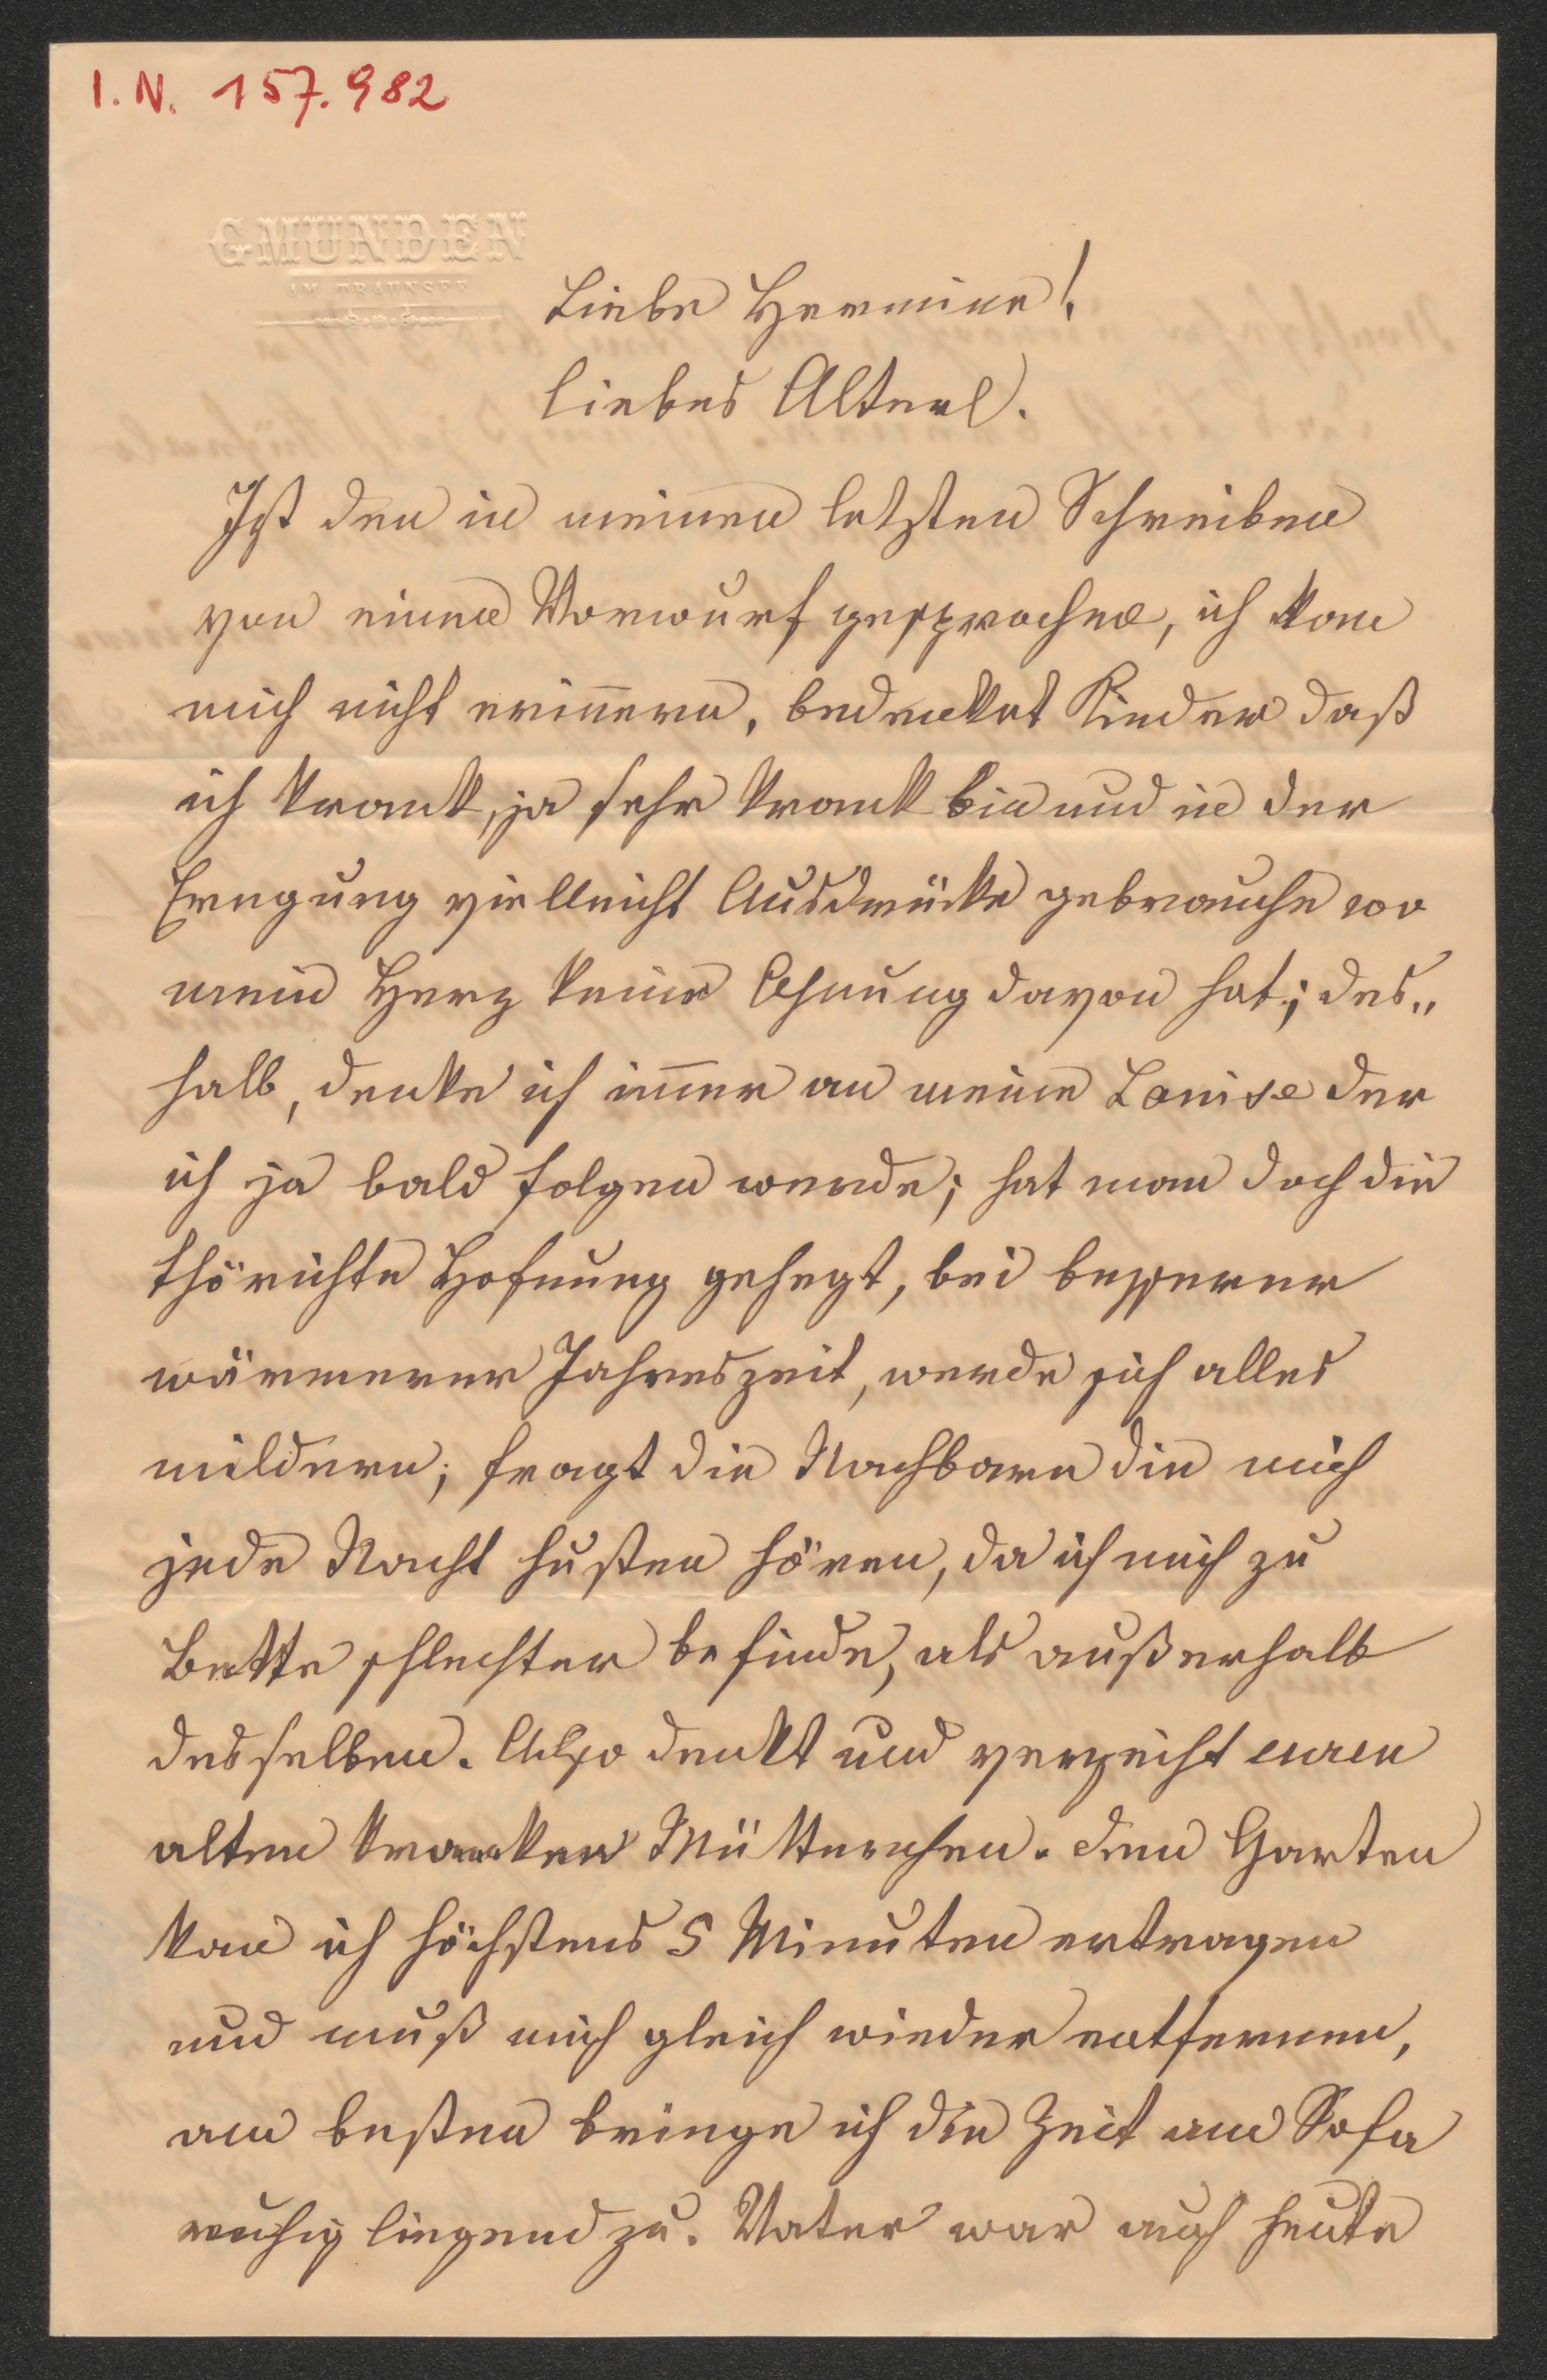 I. N. 157.982
GMUNDEN
AM TRAUNSEE
Liebe Hermine!
liebes Alterl.
Ist den in meinen letzten Schreiben
von einen Vorwurf gesprochen, ich kan
mich nicht erin̄ern, bedenket Kinder daß
ich krank, ja sehr krank bin und in der
Eregung vielleicht Ausdrücke gebrauche wo
mein Herz keine Ahnung davon hat; des„
halb, denke ich im̄er an meine Louise der
ich ja bald folgen werde; hat man doch die
thörichte Hofnung gehegt, bei besserer
wärmerer Jahreszeit, werde sich alles
mildern; fragt die Nachbarn die mich
jede Nacht husten hören, da ich mich zu
Bette schlechter befinde, als außerhalb
desselben. Also denkt und verzeiht euren
alten kranken Mütterchen. Den Garten
kan ich höchstens 5 Minuten ertragen
und muß mich gleich wieder entfernen,
am besten bringe ich die Zeit am Sofa
ruhig liegend zu. Vater war auch heute